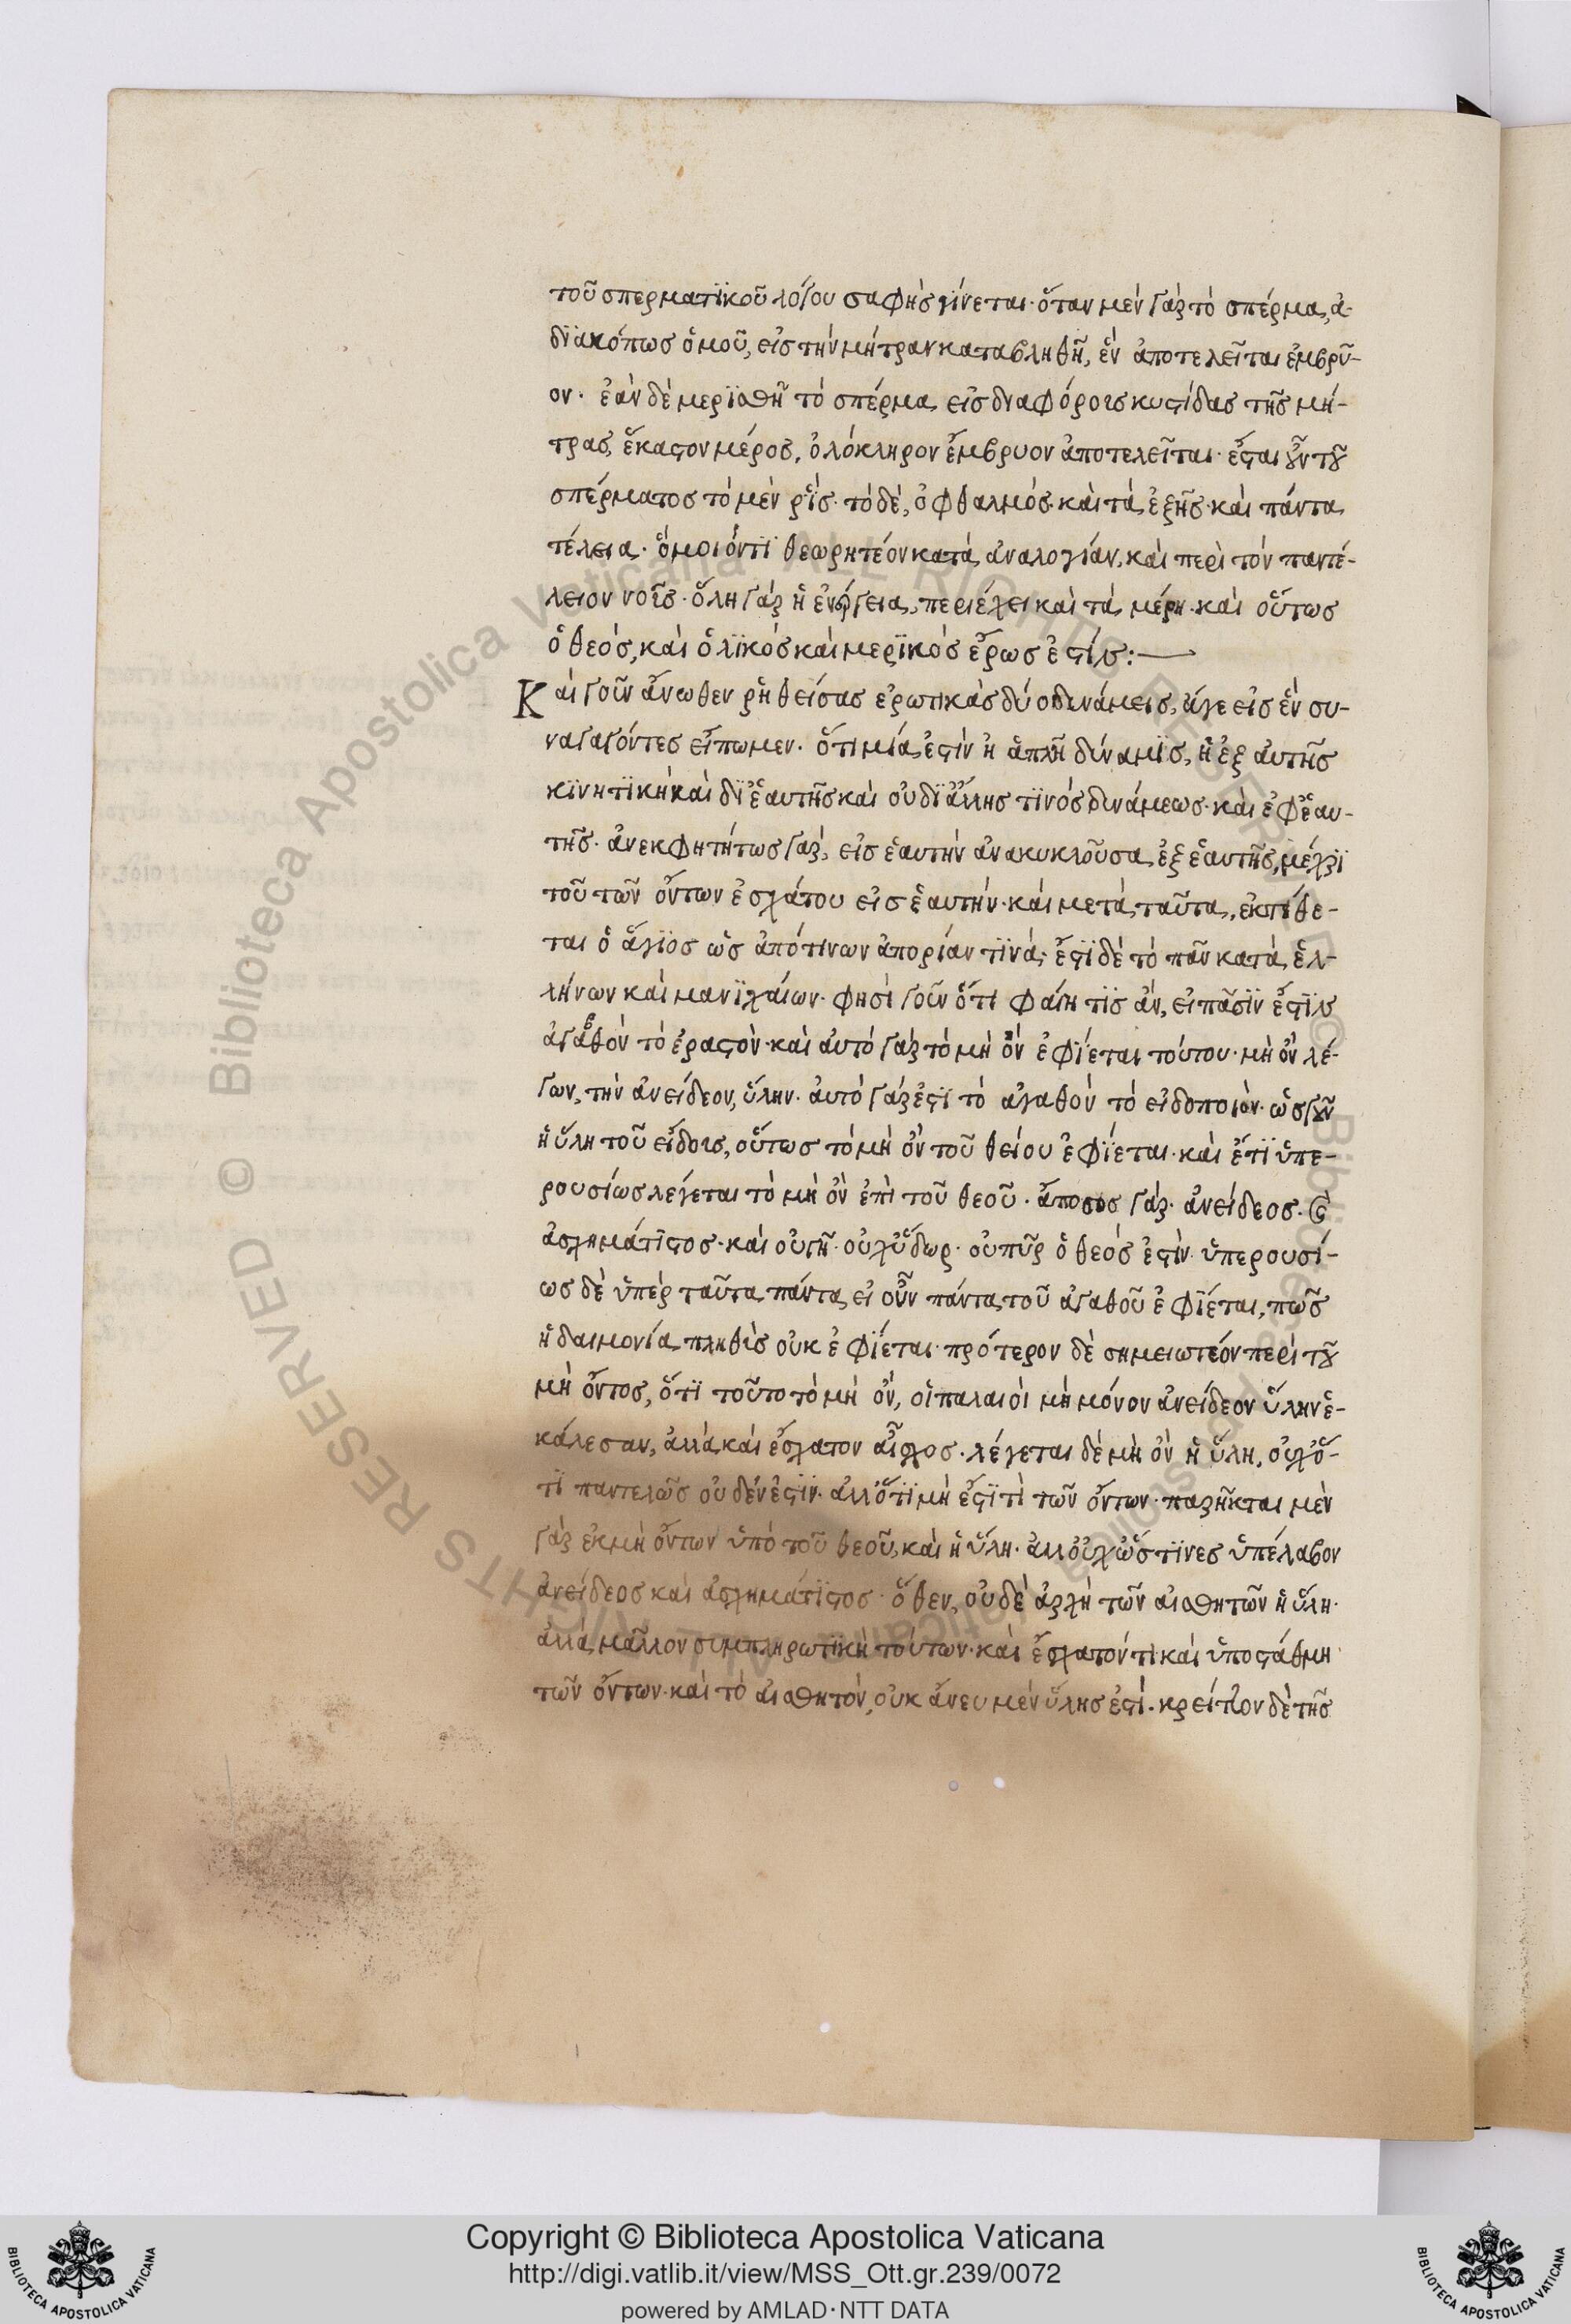 τοῦ σπερματϊκοῦ λόγου σαφὴς γίνεται· ὅταν μὲν γὰρ τὸ σπέρμα, ἀ-
διακόπως ὁμοῦ, εἰς τὴν μήτραν καταβληθῆ, ἓν ἀποτελεῖται ἐμβρῦ-
ον· ἐὰν δὲ μερϊσθῆ τὸ σπέρμα εἰς διαφόροις κυστίδας τῆς μή-
τρας, ἕκαστον μέρος, ὁλόκληρον ἔμβρυον ἀποτελεῖται· ἔσται οὖν τοῦ
σπέρματος τὸ μὲν ῥῒς· τὸ δὲ, ὀφθαλμός· καὶ τὰ ἑξῆς· καὶ πάντα
τέλεια· ὅμοιόντϊ θεωρητέον κατὰ ἀναλογίαν, καὶ περὶ τὸν παντέ-
λειον νοῦς· ὅλη γὰρ ἡ ἐνέργεια, περιέχει καὶ τὰ μέρη· καὶ οὕτως
ὁ θεός, καὶ ὁλϊκὸς καὶ μερϊκὸς ἔρως ἐστίν:—
Καὶ γοῦν ἄνωθεν ῥηθείσας ἐρωτικὰς δύο δυνάμεις, ἄγε εἰς ἓν συ-
ναγαγόντες εἴπωμεν· ὅτι μία ἐστὶν ἡ ἁπλῆ δύναμϊς, ἡ ἐξ αὐτῆς
κϊνητϊκὴ καὶ δϊ ἑαυτῆς καὶ οὐ δϊ ἄλλης τϊνὸς δυνάμεως· καὶ ἐφ ἑαυ-
τῆς· ἀνεκφητήτως γὰρ, εἰς ἑαυτὴν ἀνακυκλοῦσα ἐξ ἑαυτῆς, μέχρϊ
τοῦ τῶν ὄντων ἐσχάτου εἰς ἑαυτήν· καὶ μετὰ ταῦτα, ἐκτίθε-
ται ὁ ἅγϊος ὡς ἀπό τινων ἀπορίαν τϊνά· ἔστϊ δὲ τὸ πᾶν κατὰ ἑλ-
λήνων καὶ μανϊχαίων· φησὶ γοῦν ὅτι φαίη τϊς ἂν, εἰ πᾶσϊν ἔστϊν
ἀγαθὸν τὸ ἐραστὸν· καὶ αὐτὸ γὰρ τὸ μὴ ὂν ἐφϊέται τούτου· μὴ ὂν λέ-
γων, τὴν ἀνείδεον, ὕλην· αὐτὸ γάρ ἐστϊ τὸ ἀγαθὸν τὸ εἰδοποιὸν· ὡς γοῦν
ἡ ὕλη τοῦ εἴδους, οὕτως τὸ μὴ ὂν τοῦ θείου ἐφϊέται· καὶ ἔτϊ ὑπε-
ρουσίως λέγεται τὸ μὴ ὂν ἐπὶ τοῦ θεοῦ· ἄποσος γὰρ· ἀνείδεος· καὶ
ἀσχημάτϊστος· καὶ οὐ γῆ· οὐχ ὕδωρ· οὐ πῦρ ὁ θεός ἐστὶν· ὑπερουσί-
ως δὲ ὑπὲρ ταῦτα πάντα εἰ οὖν πάντα τοῦ ἀγαθοῦ ἐφϊέται, πῶς
ἡ δαιμονία πληθὺς οὐκ ἐφϊέται· πρότερον δὲ σημειωτέον περὶ τοῦ
μὴ ὄντος, ὅτϊ τοῦτο τὸ μὴ ὂν, οἱ παλαιοὶ μὴ μόνον ἀνείδεον ὕλην ἐ-
κάλεσαν, ἀλλὰ καὶ ἔσχατον αἶσχος· λέγεται δὲ μὴ ὂν ἡ ὕλη, οὐχ ὅ-
τϊ παντελῶς οὐδέν ἐστϊν· ἀλλ ὅτϊ μὴ ἔστϊ τὶ τῶν ὄντων· παρῆκται μὲν
γὰρ ἐκ μὴ ὄντων ὑπὸ τοῦ θεοῦ, καὶ ἡ ὕλη· ἀλλ οὐχ ὥς τϊνες ὑπέλαβον
ἀνείδεος καὶ ἀσχημάτϊστος· ὅθεν, οὐδὲ ἀρχὴ τῶν αἰσθητῶν ἡ ὕλη·
ἀλλὰ μᾶλλον συμπληρωτϊκὴ τούτων· καὶ ἔσχατόν τι καὶ ὑποστάθμη
τῶν ὄντων· καὶ τὸ αἰσθητὸν, οὐκ ἄνευ μὲν ὕλης ἐστί· κρεῖττον δὲ τῆς
Copyright © Biblioteca Apostolica Vaticana
http://digi.vatlib.it/view/MSS_Ott.gr.239/0072
powered by AMLAD·NTT DATA